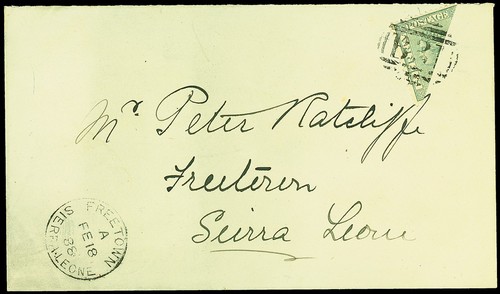 POSTAGE
B 31
Mr Peter Ratcliffe
Freetown
Sierra Leone
FREETOWN
A
FE 18
88
SIERRA LEONE